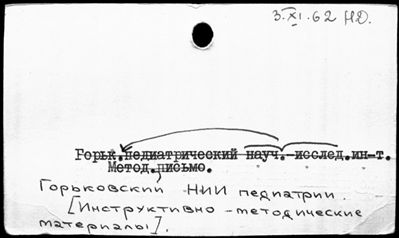 3.XI.62 Н.О.
Горьк.педиатрический науч.-исслед.ин-т.
Метод.письмо.
Горьковский НИИ педиатрии.
[Инструктивно-методические
материалы].